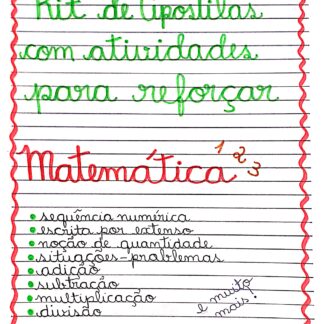 Kit de Apostilas
com atividades
para reforçar
Matemática 1 2 3
• sequência numírica
• escrita por extenso
• noção de quantidade
• situações-problemas
• adição
• subtração
• multiplicação
• divisão
e muito
mais!